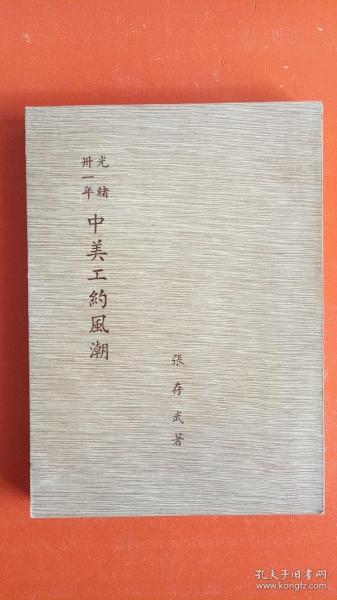 光緒
卅一年
中美工約風潮
張存武著
孔夫子旧书网
www.kongfz.com